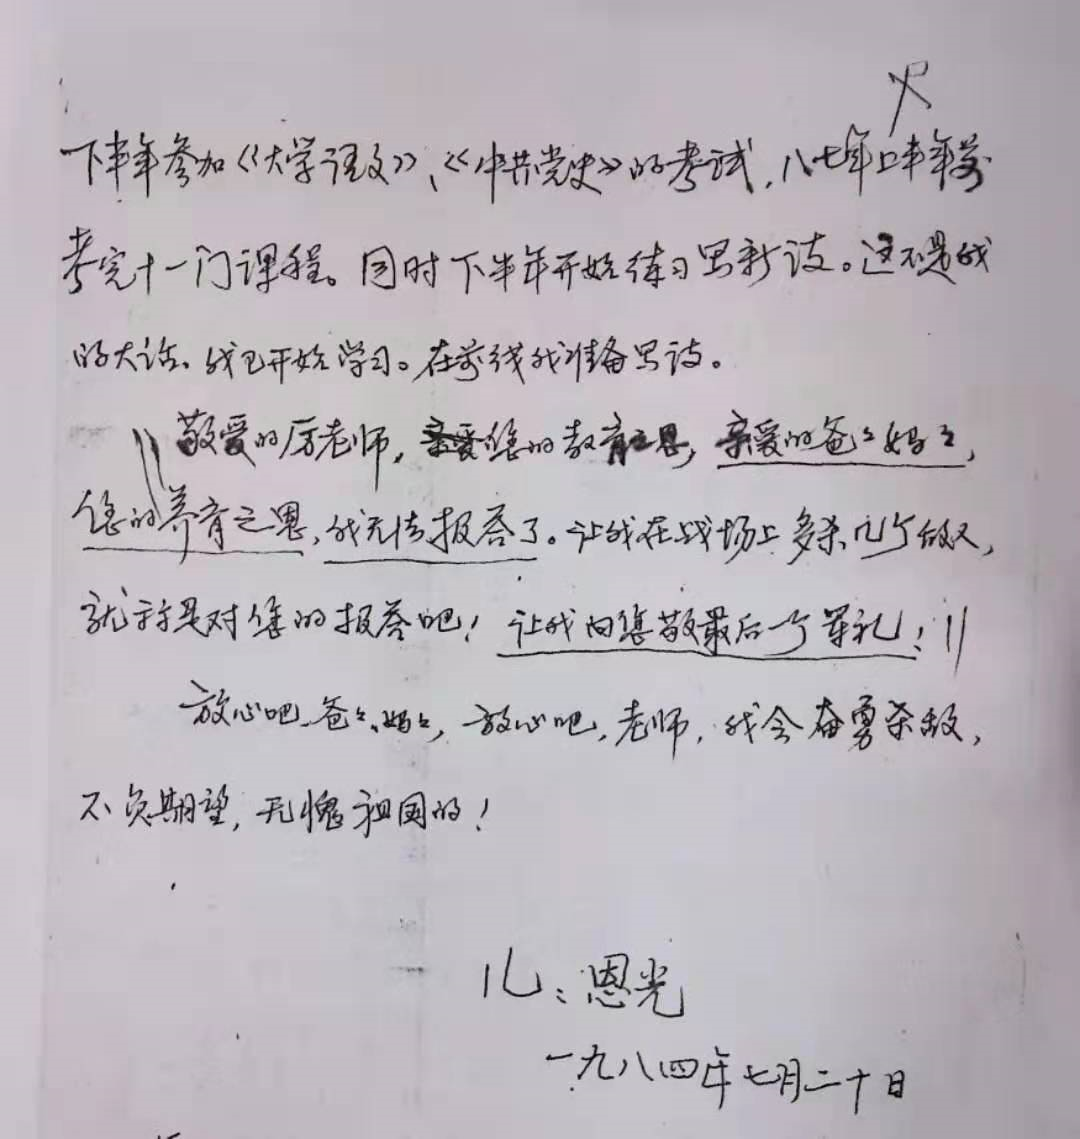 下半年参加《大学语文》、《中共党史》的考试，八七年上半年前
考完十一门课程。同时下半年开始练习写新诗。这不是我
的大话。我已开始学习。在前线我准备写诗。
敬爱的厉老师，您的教育之恩，亲爱的爸爸妈妈，
您的养育之恩，我无法报答了。让我在战场上多杀几个敌人，
就算是对您的报答吧！让我向您敬最后一个军礼！
放心吧，爸爸、妈妈，放心吧，老师，我会奋勇杀敌，
不负期望，无愧祖国的！
儿：恩光
一九八四年七月二十日